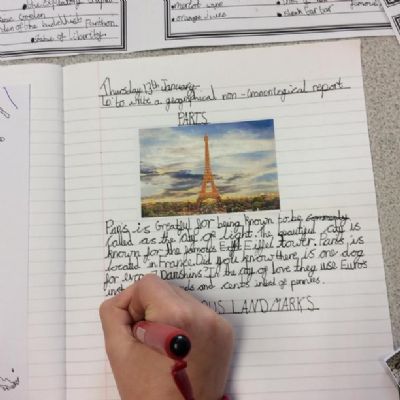 • statue of liberty.
• merlot wine
• orange juice
famous
• steak tartar
Thursday 13th January
To to write a geographical non-cronological report
PARIS
Paris is Greatful for being known to be commonly
called as the city of light. The beautiful city is
known for the famous Eiffel Eiffel tower. Paris is
located in France. Did you know there is one dog
for every 7 Parishins? In the city of love they use Euros
inst and cents insted of pennies.
OUS LANDMARKS